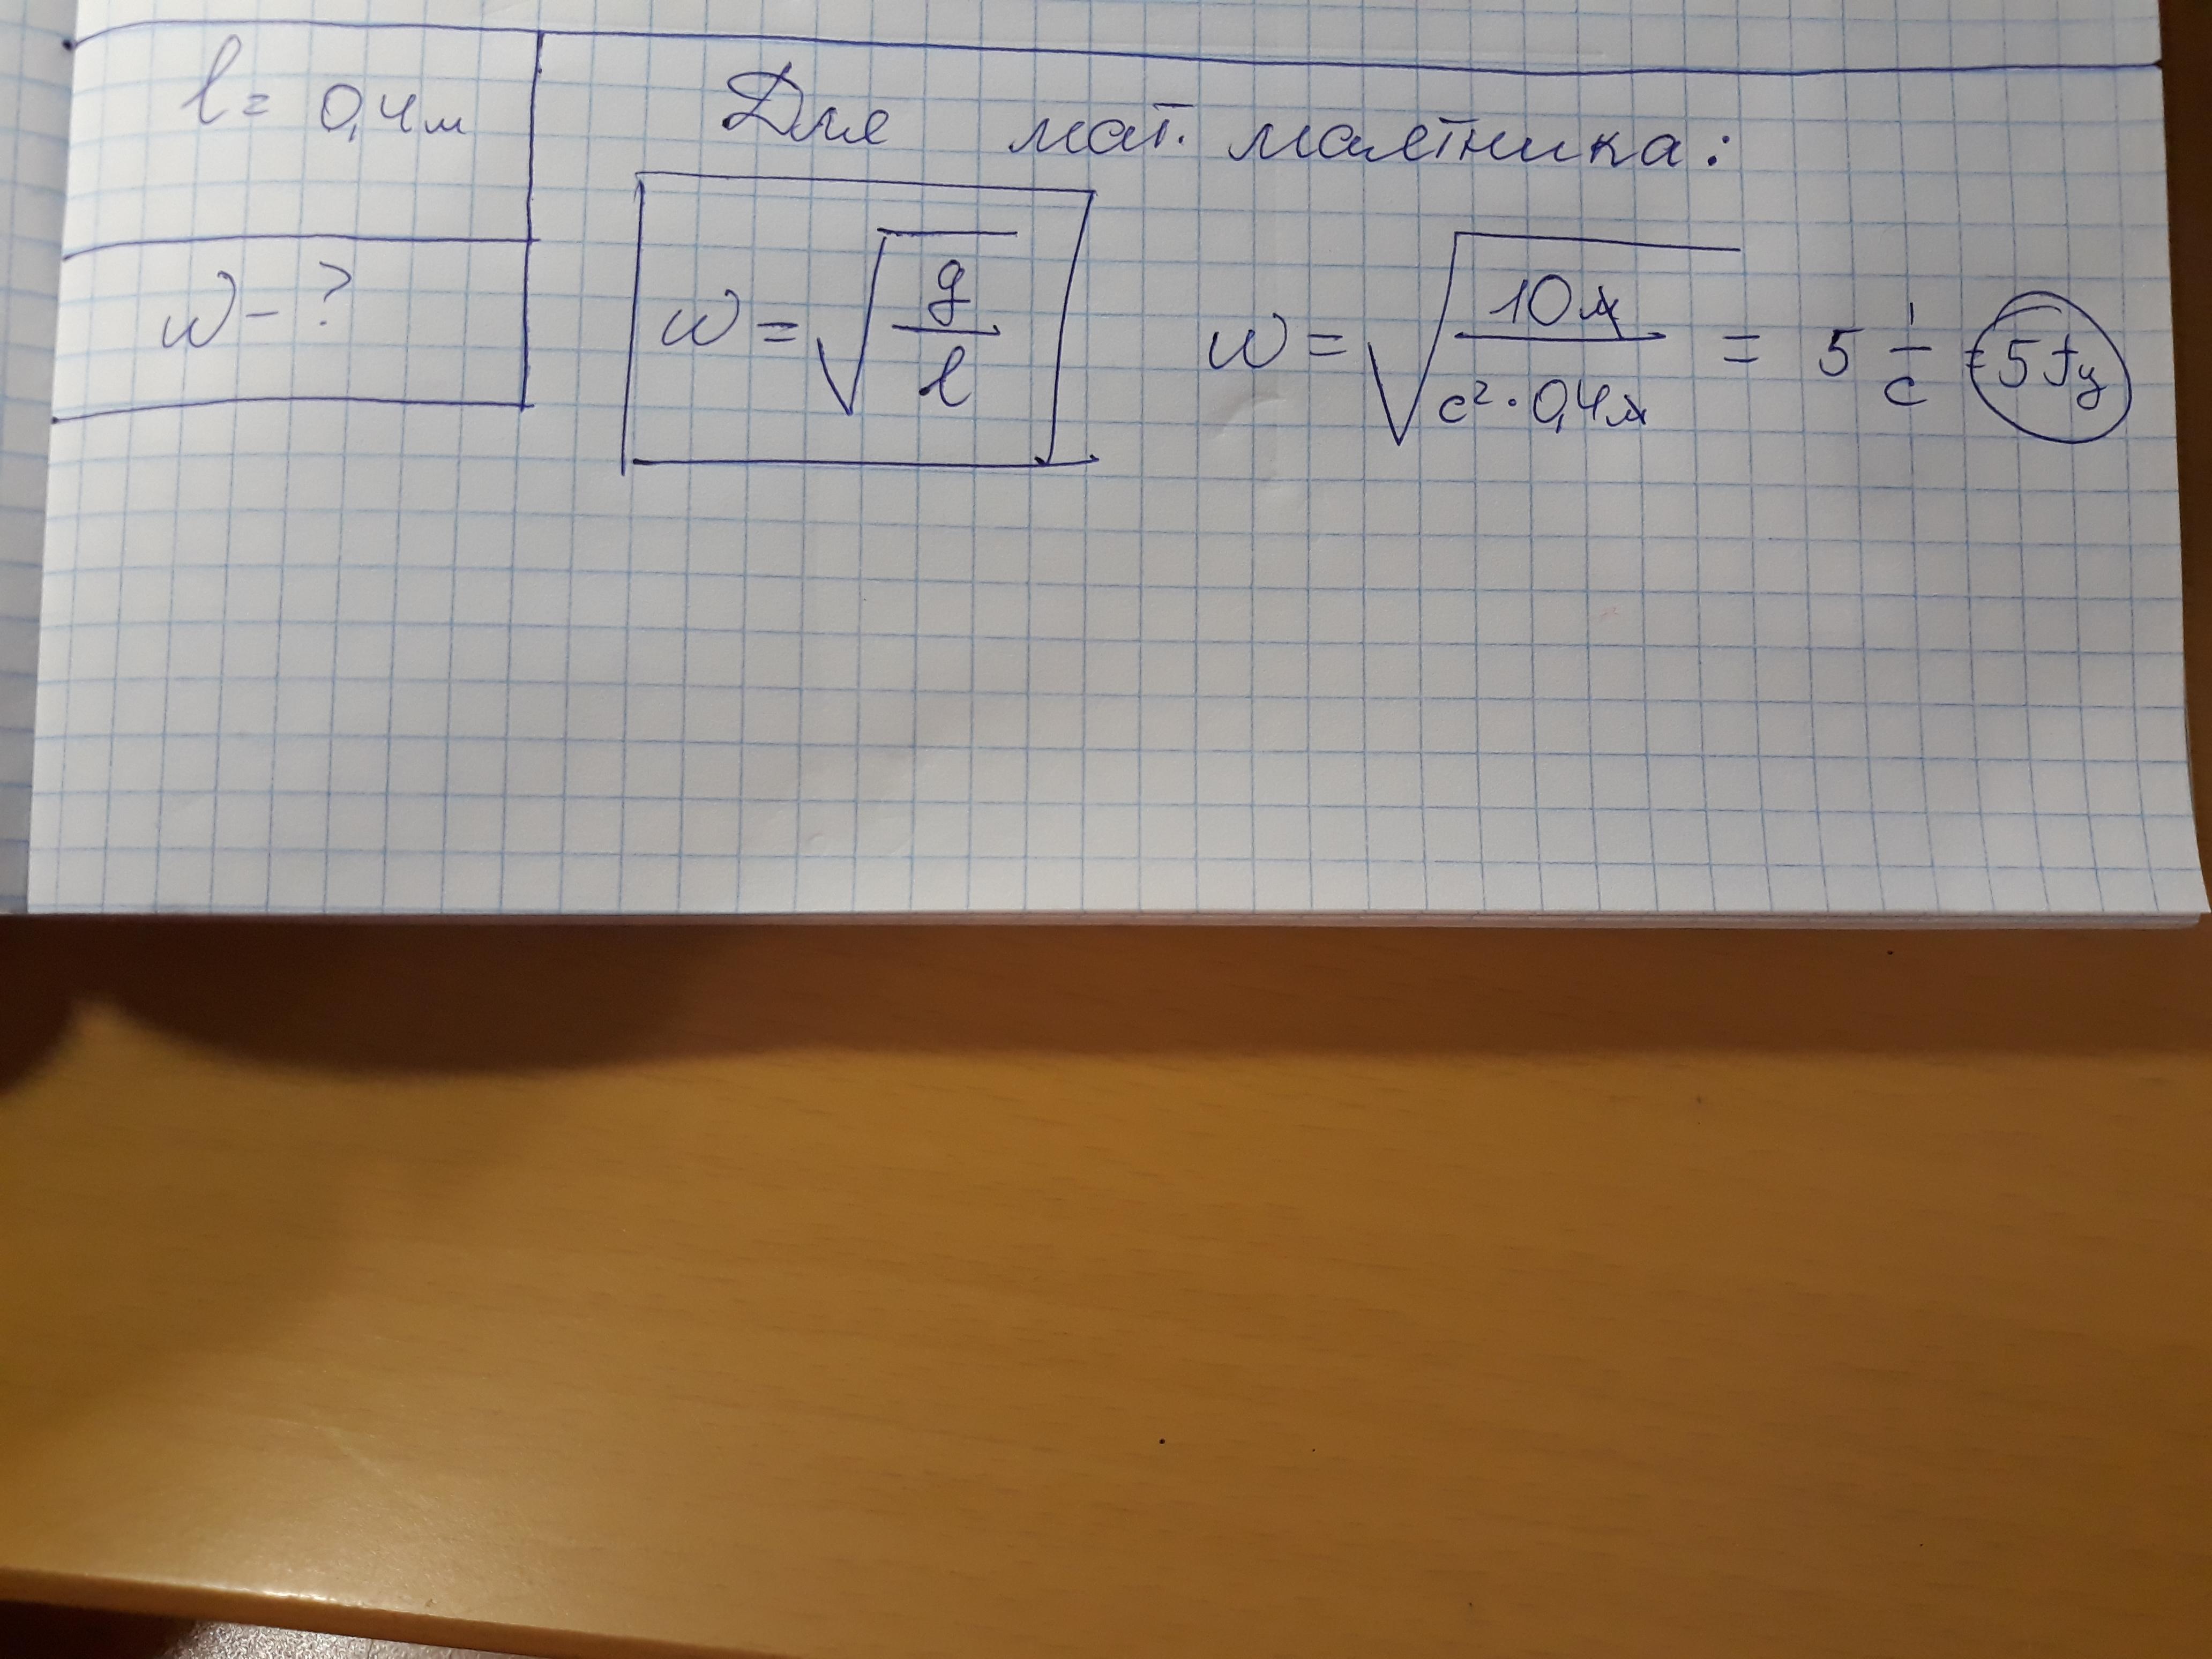 l = 0,4м
Для мат. маятника:
ω - ?
ω = √(g/l)
ω = √(10м/(с²·0,4м)) = 5 1/с = 5 Гц